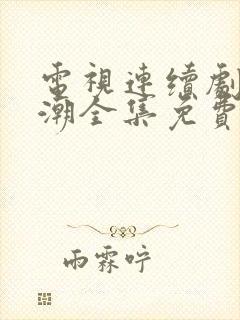 電視連續劇
潮全集免費
雨霖咛